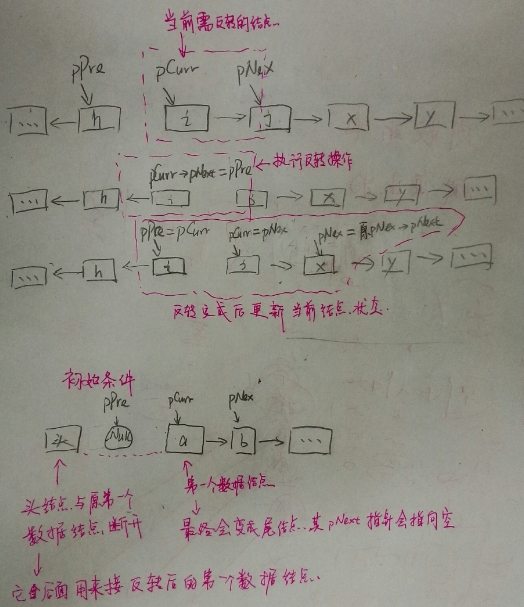 当前需反转的结点.
pPre pCurr pNex
... h i j x y ...
pCurr→pNext = pPre 执行反转操作
... h i x y ...
pPre = pCurr pCurr = pNex pNex = 原pNex→pNext
... h i j x y ...
反转完成后更新当前结点.状态.
初始条件
pPre pCurr pNex
Null a b ...
第一个数据结点
头结点与原第一个
数据结点.断开
最终会变成尾结点..其pNext指针会指向空
它会后面用来接反转后的第一个数据结点..